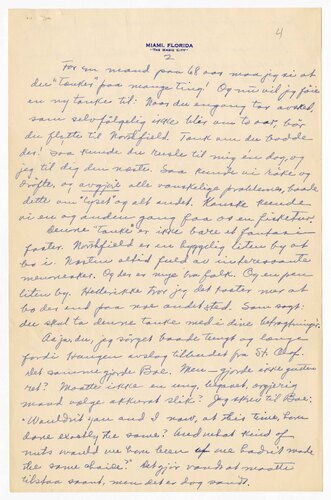 4
MIAMI, FLORIDA
"THE MAGIC CITY"
2
For en mand paa 68 aar maa jeg si at
du "tanker" paa mange ting! Og nu vil jeg föie
en ny tanke til: Naar du engang tar avsked,
som selvfölgelig ikke blir om to aar, bör
du flytte til Northfield. Tænk om du bodde
der! Saa kunde du rusle til mig en dag, og
jeg til dig den næste. Saa kunde vi rake og
dröfte, og avgjöre alle vanskelige problemer, baade
dette om "lyset" og alt andet. Kanske kunde
vi en og anden gang faa os en fisketur.
Denne tanke er ikke bare et fantasi-
foster. Northfield er en hyggelig liten by at
bo i. Næsten altid fuld av interessante
mennesker. Og der er mye bra folk. Og en pen
liten by. Hellerikke tror jeg det koster mer at
bo der end paa noe andet sted. Som sagt:
du skal ta denne tanke med i dine
Aa ja, du, jeg sörget baade tungt og længe
fordi avslog tilbudet fra St. Olaf.
Det samme gjorde Boe. Men gjorde ikke gutten
ret? Maatte ikke en ung, begavet, ærgjerrig
mand vælge akkurat slik? Jeg skrev til Boe:
"Wouldn't you and I now, at this time, have
done exactly the same? And what kind of
nuts would we have been if we hadn't made
the same choice?" Det gjör vondt at maatte
tilstaa saant, men det er dog sandt.